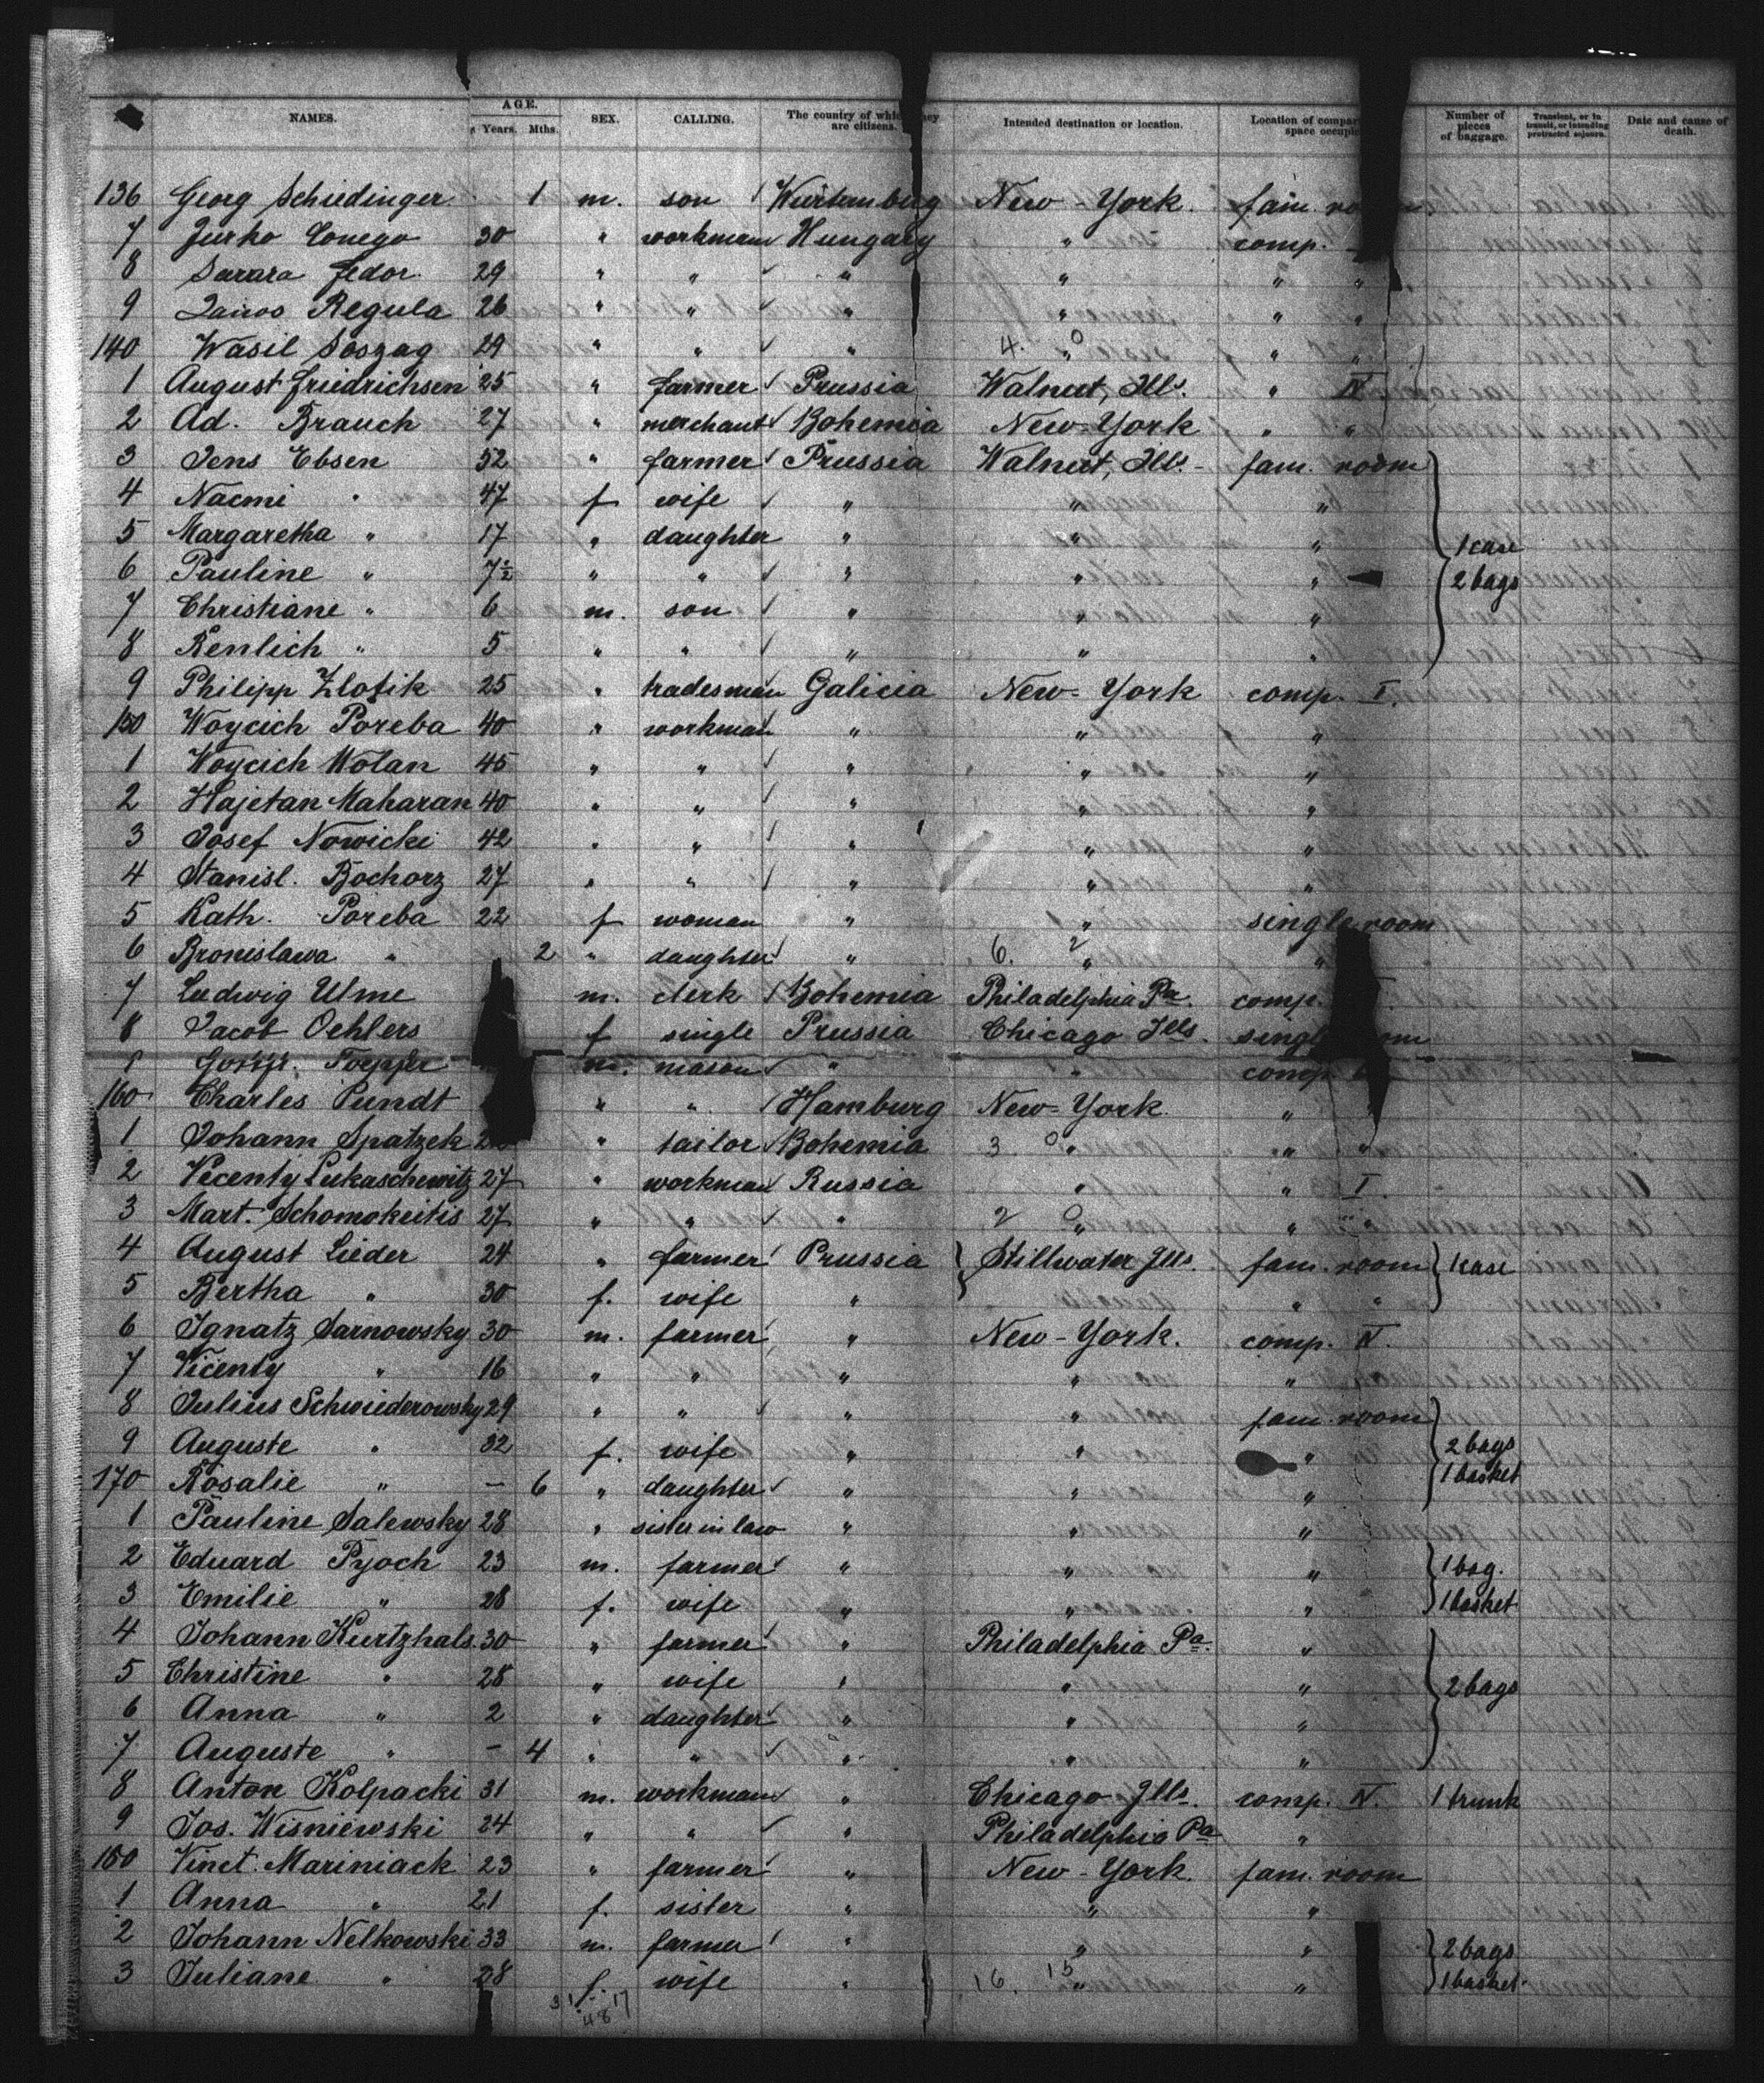 NAMES. AGE. Years. Mths. SEX. CALLING. The country of which they are citizens. Intended destination or location. Location of compar space occupie Number of pieces of baggage. Transient, or in transit, or intending protracted sojourn. Date and cause of death.
136 Georg Schiedinger 1 m. son Würtemberg New-York. fam. room
7 Jurko 30 " workman Hungary " comp.
8 Sarara Fedor 29 " " " " " "
9 Regula 26 " " " " " "
140 Wasil Soszag 29 " " " 4. 0 " " "
1 August Friedrichsen 25 " farmer Prussia Walnut, Ills. " IV
2 Ad. Brauch 27 " merchant Bohemia New-York " "
3 Jens Ebsen 52 " farmer Prussia Walnut, Ills. fam. room
4 Naemi " 47 f wife " " "
5 Margaretha " 17 " daughter " " " 1 case
6 Pauline " 7½ " " " " " 2 bags
7 Christiane " 6 m. son " " "
8 Renlich " 5 " " " " "
9 Philipp Zlotik 25 " tradesman Galicia New-York comp. I.
150 Woycich Poreba 40 " workman " " "
1 Woycich Wolan 45 " " " " "
2 Hajetan Maharan 40 " " " " "
3 Josef Nowicki 42 " " " " "
4 Stanisl. Bochorz 27 " " " " "
5 Kath. Poreba 22 f woman " " single room
6 Bronislawa " 2 " daughter " 6. 2 " "
7 Ludwig Ulme m. clerk Bohemia Philadelphia Pa. comp.
8 Jacob Oehlers f single Prussia Chicago Ills. single room
9 Toepfer m. mason " " comp
160 Charles Pundt " " Hamburg New-York "
1 Johann Spatzek " tailor Bohemia 3 0 " " "
2 Vicenty Lukaschewitz 27 " workman Russia " " I.
3 Mart. Schomokeitis 27 " " " 2 0 " " "
4 August Lieder 24 " farmer Prussia Stillwater Ills. fam. room 1 case
5 Bertha " 30 f. wife " " "
6 Ignatz Sarnowsky 30 m. farmer " New-York. comp. IV.
7 Vicenty " 16 " " " " "
8 Julius Schwiderowsky 29 " " " " fam. room
9 Auguste " 32 f. wife " " " 2 bags
170 Rosalie " – 6 " daughter " " " 1 basket
1 Pauline Salewsky 28 " sister in law " " "
2 Eduard Pyoch 23 m. farmer " " " 1 bag.
3 Emilie " 28 f. wife " " " 1 basket
4 Johann Kurtzhals 30 " farmer " Philadelphia Pa. "
5 Christine " 28 " wife " " " 2 bags
6 Anna " 2 " daughter " " "
7 Auguste " – 4 " " " " "
8 Anton Kolpacki 31 m. workman " Chicago Ills. comp. IV. 1 trunk
9 Jos. Wisniewski 24 " " " Philadelphia Pa "
180 Vinct. Mariniack 23 " farmer " New-York. fam. room
1 Anna " 21 f. sister " " "
2 Johann Nelkowski 33 m. farmer " " " 2 bags
3 Juliane " 28 f. wife " 16. 15 " " 1 basket
31 17
48